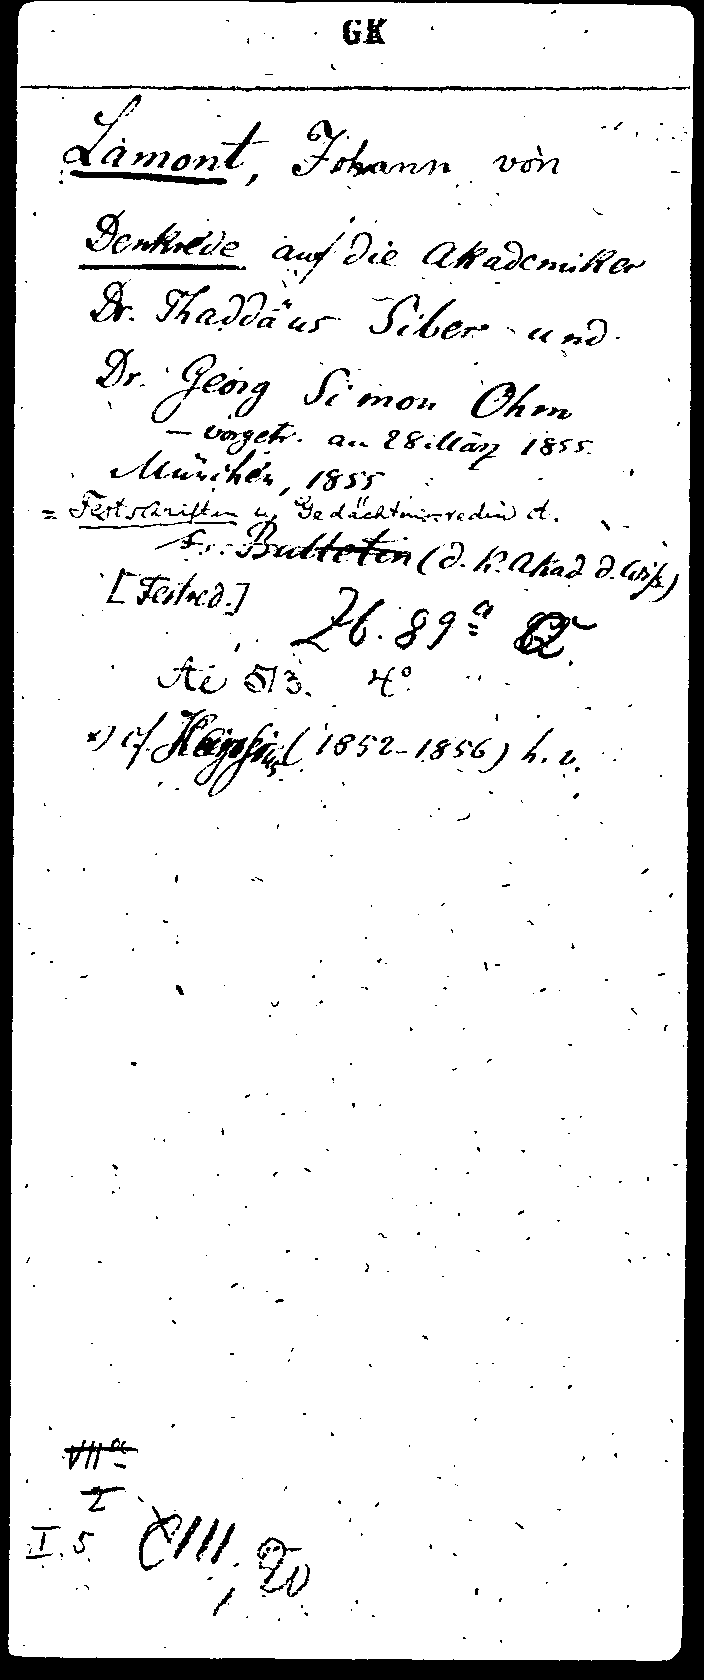 GK
Lamont, Johann von
Denkrede auf die Akademiker
Dr. Thaddäus Siber und
Dr. Georg Simon Ohm
— vorgetr. am 28. März 1855.
München, 1855
= Festschriften u. Gedächtnisreden d.
Bulletin (d. k. Akad d. Wiss)
[Festred.]
Zb. 89ª
Ae 513. 4°
x) cf. (1852-1856) h. v.
VIIª
I
I. 5. XIII, 20